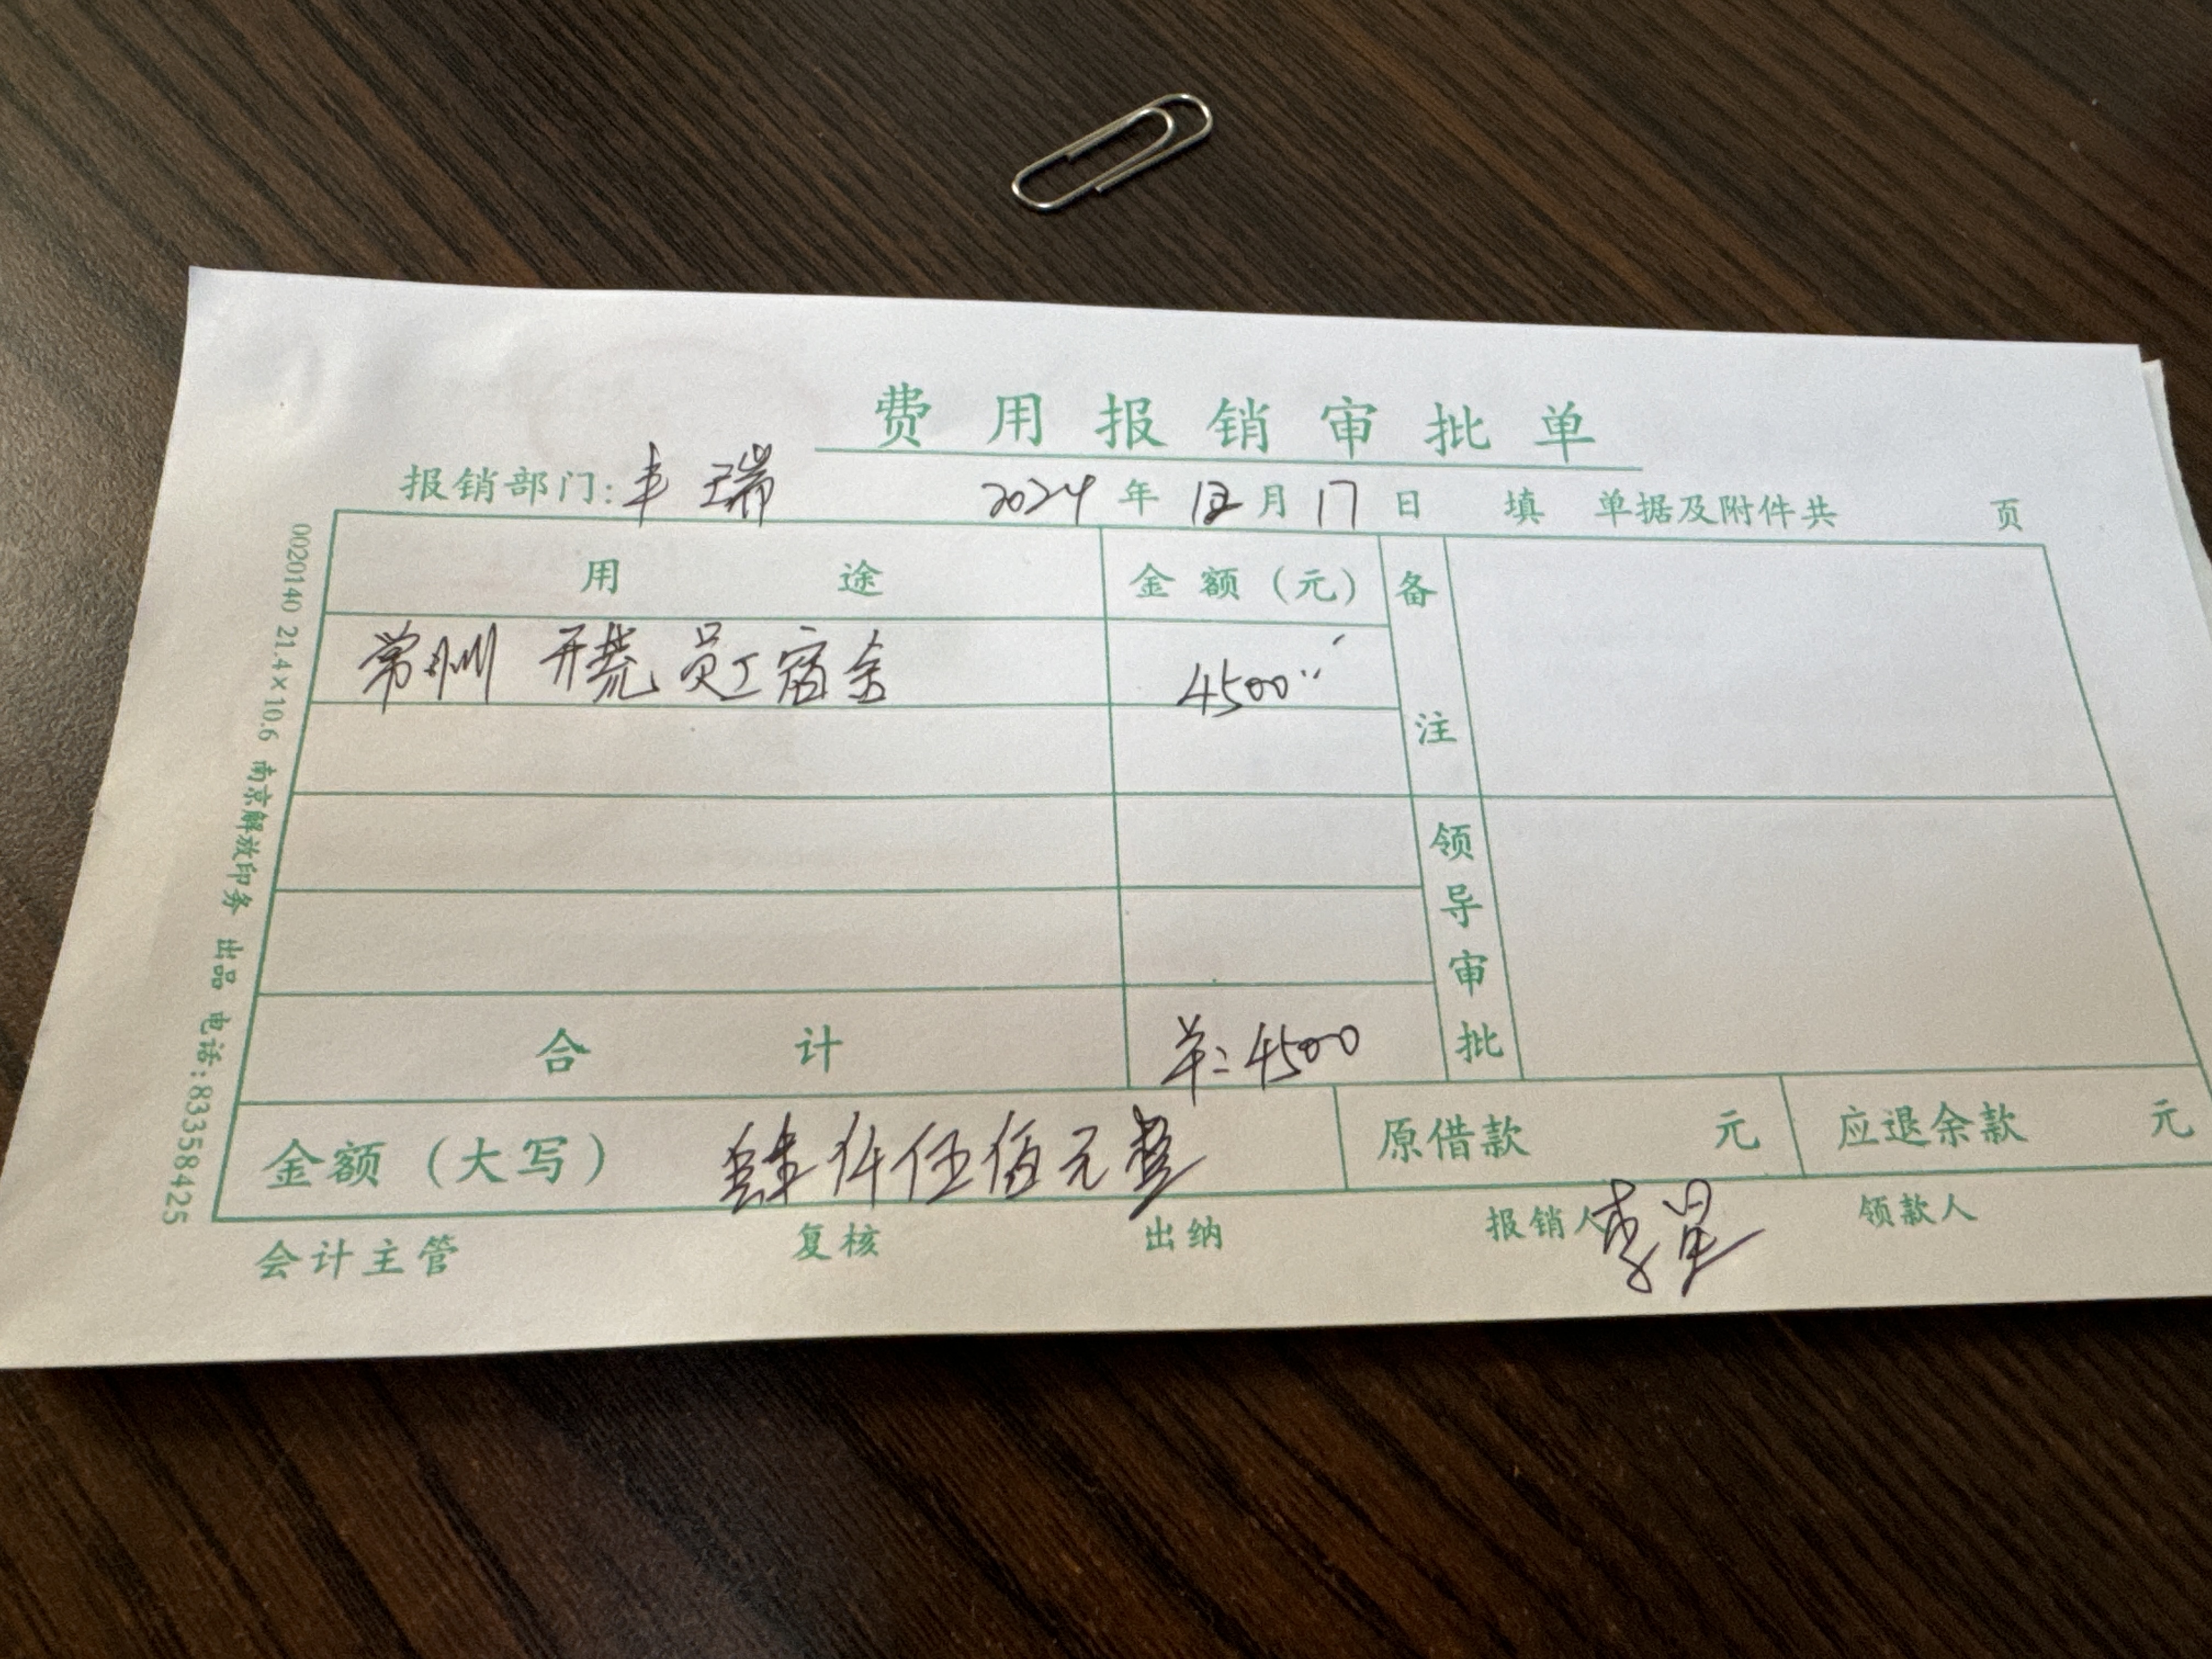 费用报销审批单
报销部门：丰瑞 2024年12月17日 填 单据及附件共 页
用途 金额（元） 备注
常州 开荒员工宿舍 4500
合计 ¥：4500
领导审批
金额（大写） 肆仟伍佰元整 原借款 元 应退余款 元
会计主管 复核 出纳 报销人 领款人
0020140 21.4×10.6 南京解放印务 出品 电话：83358425